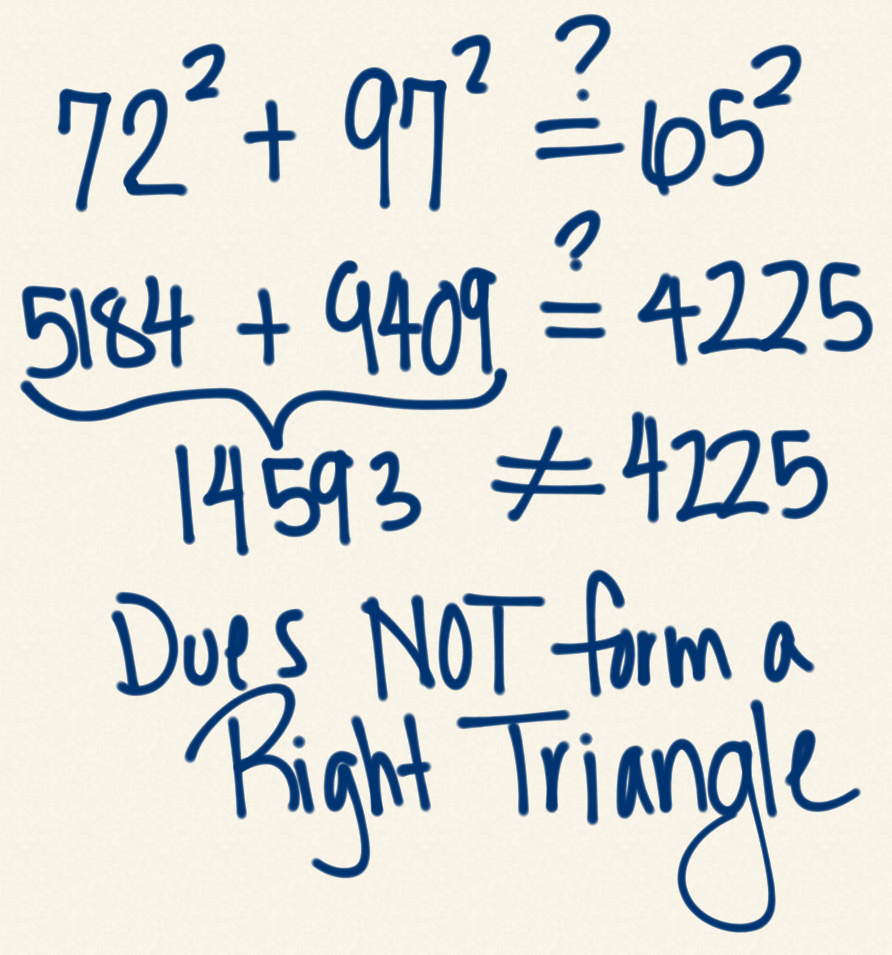 72² + 97² ≟ 65²
5184 + 9409 ≟ 4225
14593 ≠ 4225
Dues NOT form a
Right Triangle